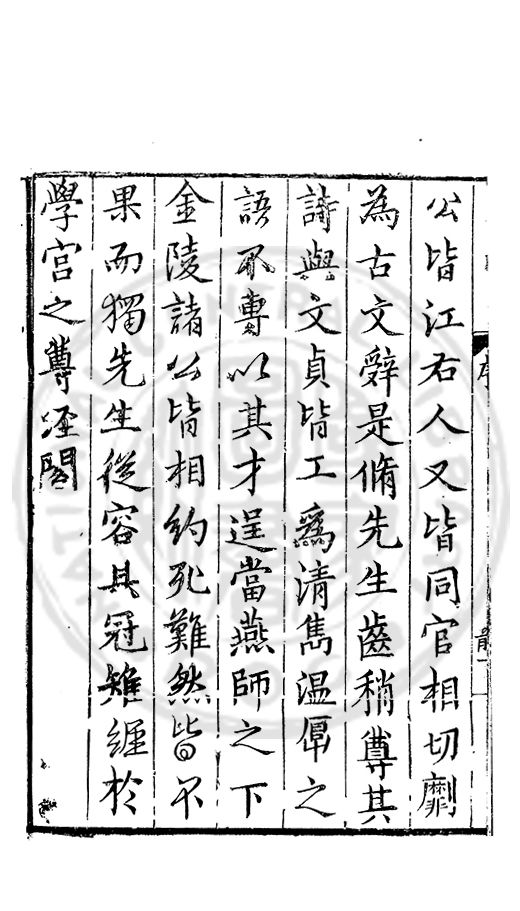 公皆江右人又皆同官相切劘
為古文辭是脩先生齒稍尊其
詩與文貞皆工爲清雋温厚之
語不專以其才逞當燕師之下
金陵諸公皆相約死難然皆不
果而獨先生從容具冠雉經於
學宫之尊經閣